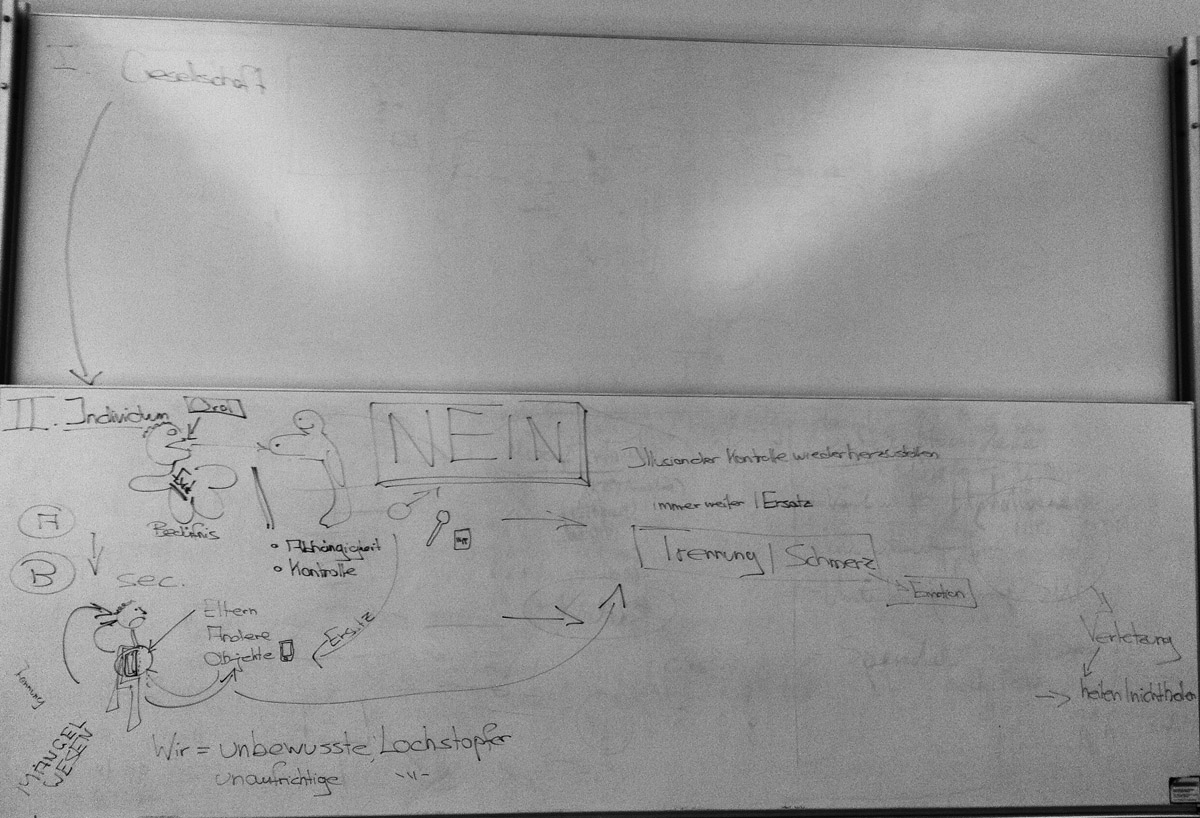 I. Gesellschaft
II. Individum
Oral
NEIN
Illusion der Kontrolle wiederherzustellen
immer weiter / Ersatz
A
Bedüfnis
• Abhängigkeit
• Kontrolle
Trennung / Schmerz
Emotion
B
sec.
Eltern
Andere
Objekte
Ersatz
Verletzung
heilen / nicht
Trennung
MÄNGEL
WESEN
Wir = unbewusste, Lochstopfer
unaufrichtige -"-